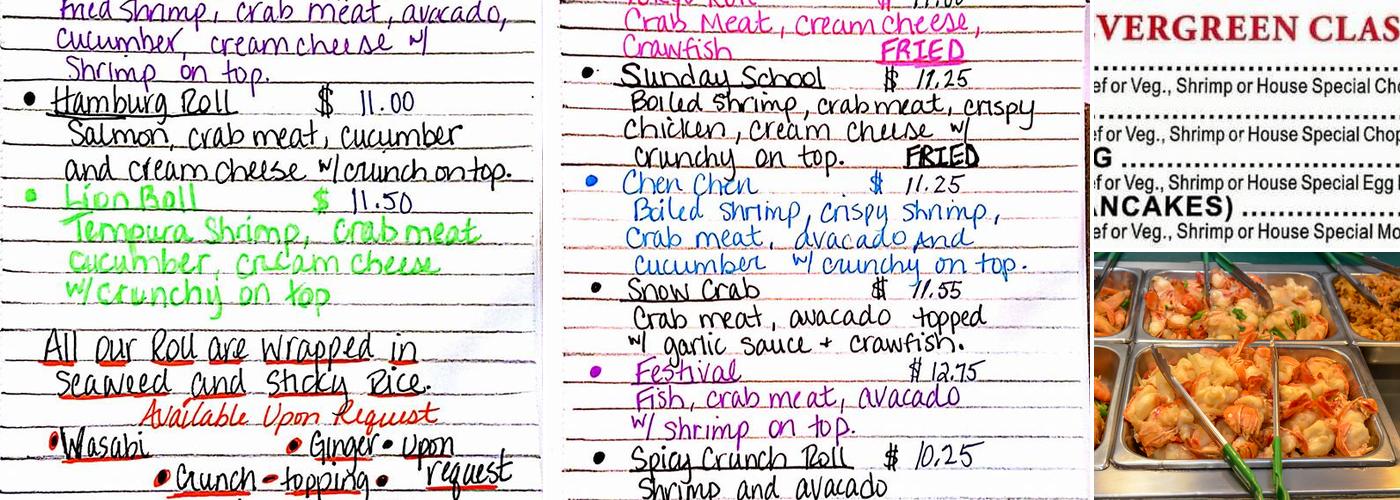 fried shrimp, crab meat, avacado,
cucumber, cream cheese w/
Shrimp on top.
• Hamburg Roll $ 11.00
Salmon, crab meat, cucumber
and cream cheese w/ crunch on top.
• Lion Roll $ 11.50
Tempura Shrimp, crab meat
cucumber, cream cheese
w/ crunchy on top
All our Roll are wrapped in
seaweed and sticky Rice.
Available Upon Request
• Wasabi • Ginger • upon
• Crunch - topping • request
Crab Meat, Cream Cheese,
Crawfish FRIED
• Sunday School $ 11.25
Boiled shrimp, crab meat, crispy
chicken, cream cheese w/
crunchy on top. FRIED
• Chen Chen $ 11.25
Boiled shrimp, crispy shrimp,
Crab meat, avacado And
cucumber w/ crunchy on top.
• Snow Crab $ 11.55
Crab meat, avacado topped
w/ garlic sauce + crawfish.
• Festival $ 12.75
Fish, crab meat, avacado
w/ shrimp on top.
• Spicy Crunch Roll $ 10.25
Shrimp and avacado
VERGREEN CLAS
ef or Veg., Shrimp or House Special Cho
ef or Veg., Shrimp or House Special Cho
G
ef or Veg., Shrimp or House Special Egg
ANCAKES)
ef or Veg., Shrimp or House Special Mo